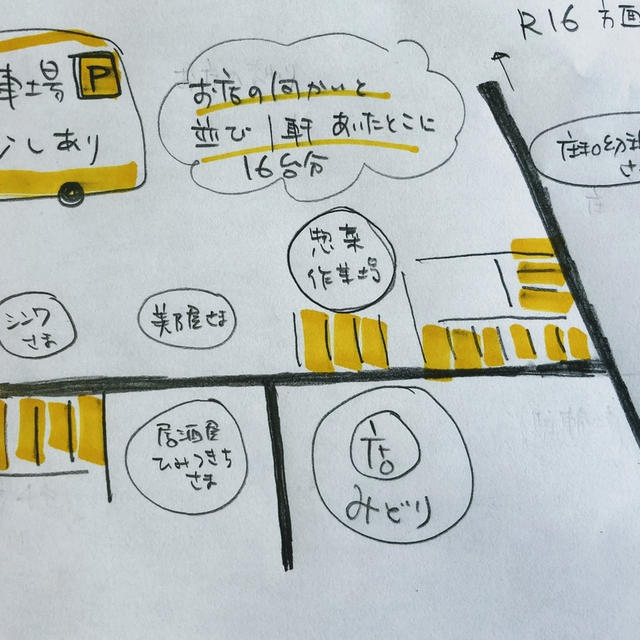 R16 方面
車場 P
しあり
お店の向かいと
並び1軒あいたとこに
16台分
惣菜
作業場
シンワ
さま
美容屋さま
居酒屋
ひみつきち
さま
店
みどり